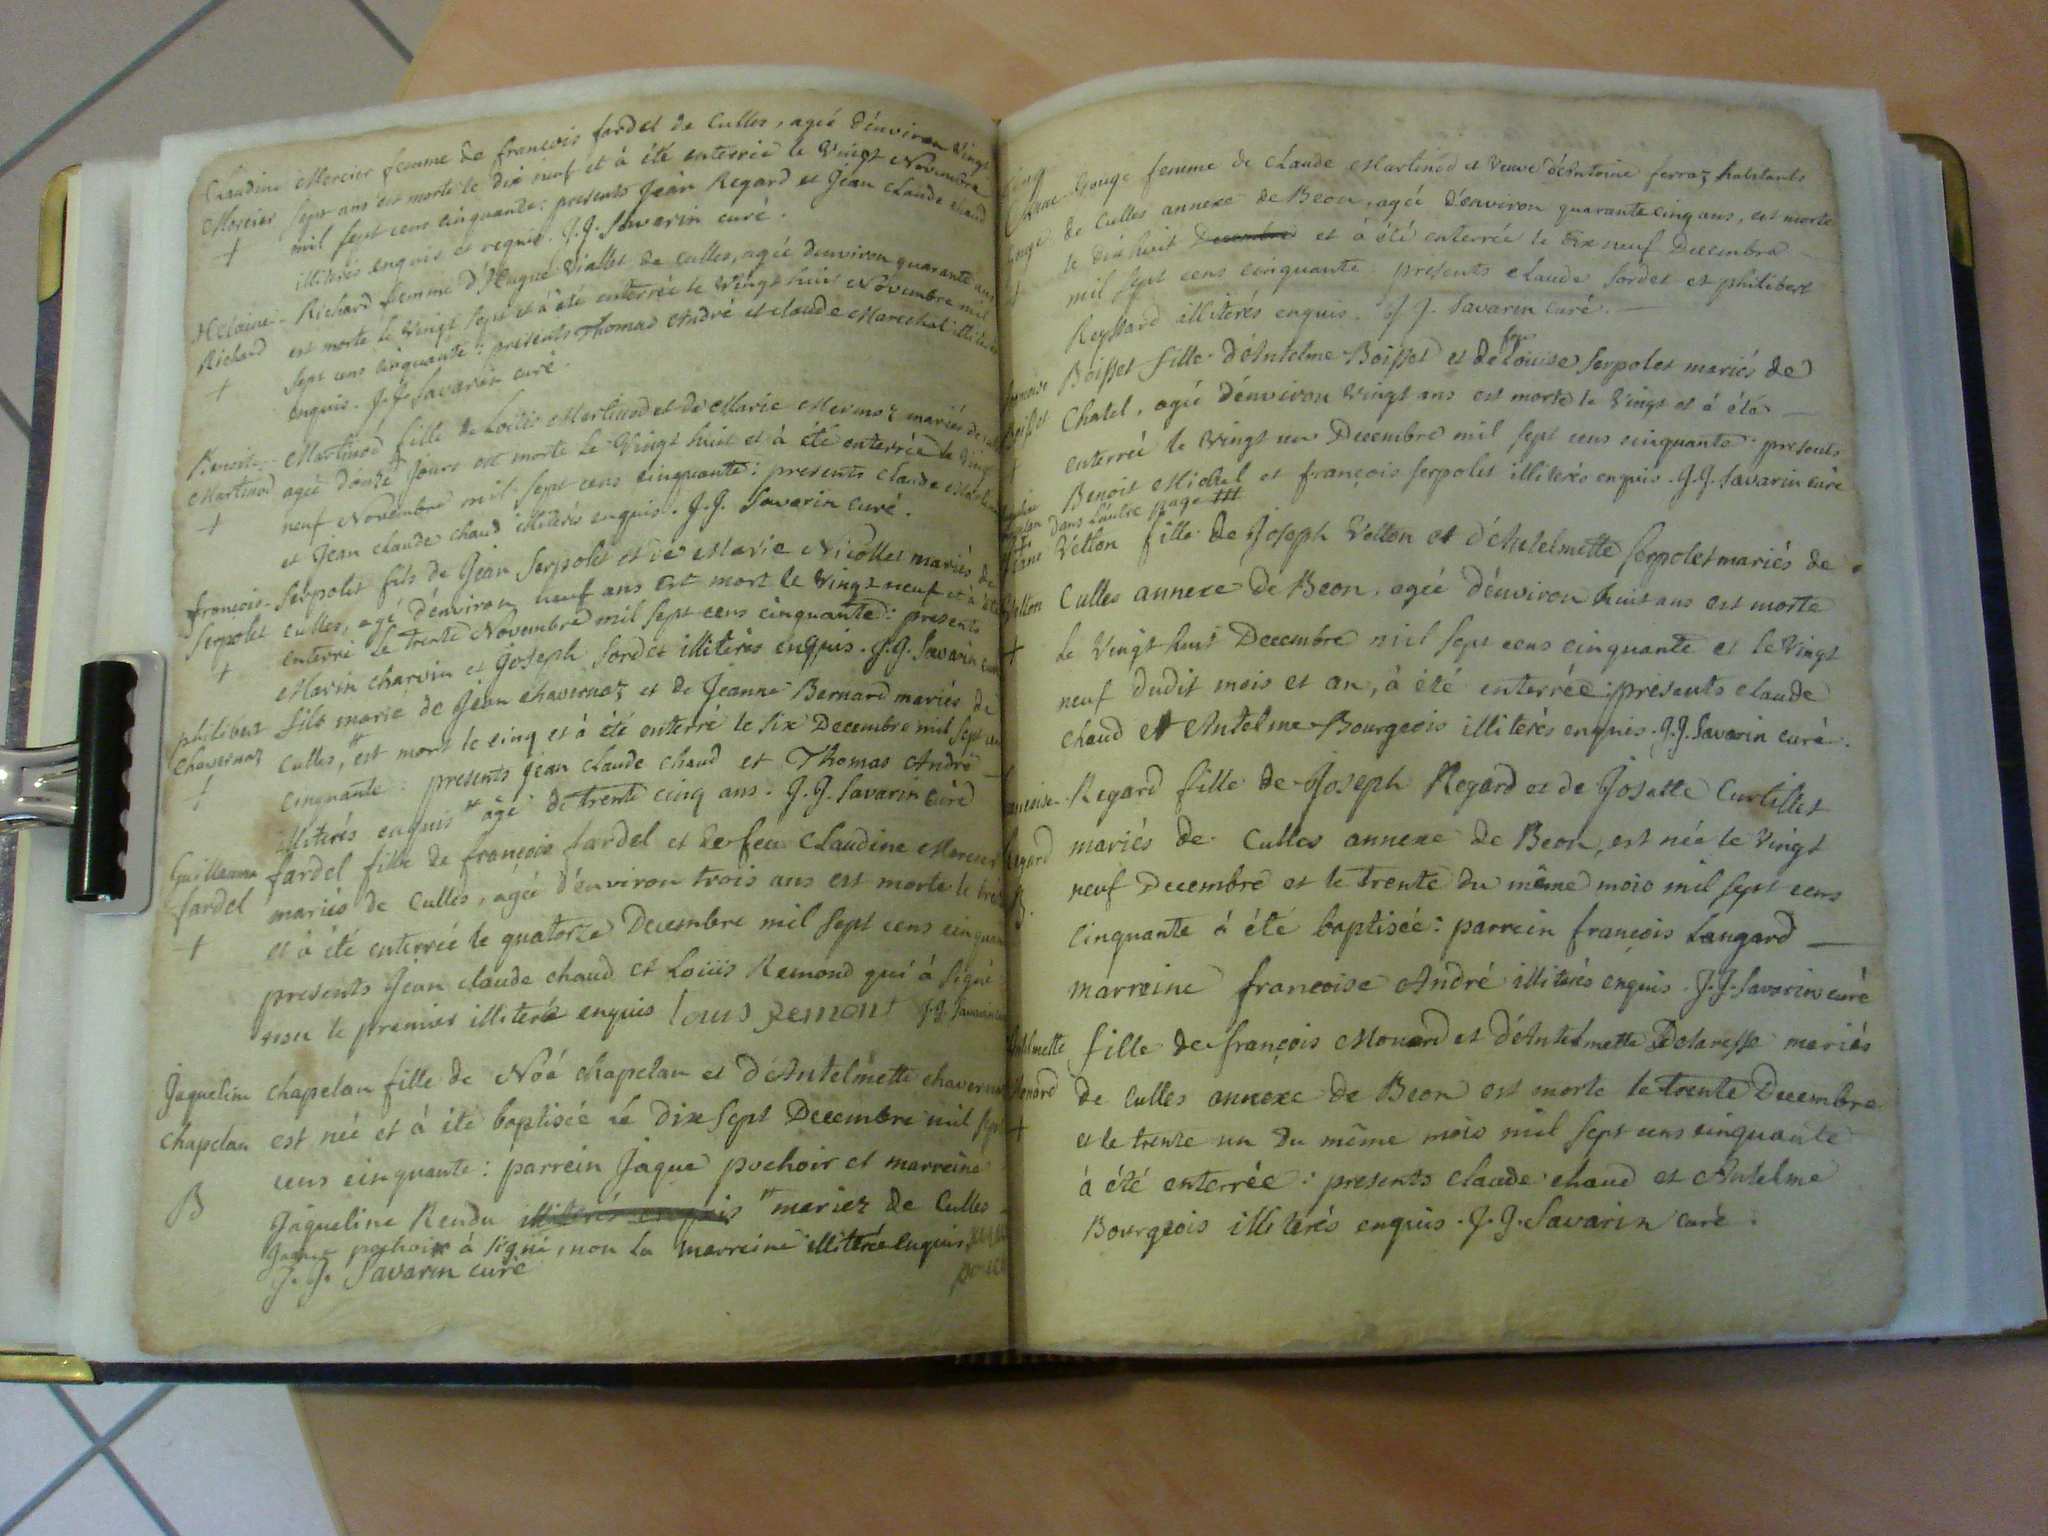 Claudine Mercier femme de francois fardel de Culles, agée d'environ Vingt
Mercier sept ans est morte le dix neuf et à été enterrée le Vingt Novembre
+ mil sept cens cinquante : presents Jean Regard et Jean Claude chaud
illiterés enquis et requis. J.J. Savarin curé.
Helaine Richard femme d'Hugue Viallet de Culles, agée denviron quarante ans
Richard est morte le Vingt sept et à été enterrée le Vingt huit Novembre mil
+ sept cens cinquante : presents Thomas André et claude Mareschal illiterés
enquis. J.J. Savarin curé.
Benoite Martinod fille de Loüis Martinod et de Marie Mermoz mariés de
Martinod agée d'onze jours est morte le Vingt huit et à été enterrée le Vingt
+ neuf Novembre mil sept cens cinquante : presents claude Martinod
et Jean claude chaud illiterés enquis. J.J. Savarin curé.
françois Serpolet fils de Jean Serpolet et de Marie Nicollet mariés de
Serpolet culles, agé d'environ neuf ans est mort le Vingt neuf et à été
+ enterré le trente Novembre mil sept cens cinquante : presents
Marin charvin et Joseph Sordet illiterés enquis. J.J. Savarin curé
philibert fils marié de Jean chavernoz et de Jeanne Bernard mariés de
Chavernoz Culles, " est mort le cinq et à été enterré le six Decembre mil sept cens
+ cinquante : presents Jean Claude chaud et Thomas André
illiterés enquis " agé de trente cinq ans. J.J. Savarin curé
Guillauma fardel fille de françois fardel et de feu Claudine Mercier
fardel mariés de Culles, agée d'environ trois ans est morte le treize
+ et à été enterrée le quatorze Decembre mil sept cens cinquante
presents Jean claude chaud et Loüis Remond qui à signé
non le premier illiteré enquis louis Remont J.J. Savarin
Jaqueline Chapelan fille de Noé chapelan et d'Antelmette chavernoz
Chapelan est née et à été baptisée le dix sept Decembre mil sept
cens cinquante : parrein Jaque pochoir et marreine
B Jaqueline Rendu illiterés enquis " mariez de Culles
Jaque pochoir à signé, non la marreine illiterée enquis.
J.J. Savarin curé
Gouge femme de claude Martinod et Veuve d'Antoine ferraz habitants
Gouge de Culles annexe de Beon, agée d'environ quarante cinq ans, est morte
+ le dix huit Decembre et à été enterrée le dix neuf Decembre
mil sept cens cinquante presents claude Sordet et philibert
Reyssard illiterés enquis. J.J. Savarin curé.
francoise Boisset fille d'Antelme Boisset et de feu Louise Serpolet mariés de
Boisset Chatel, agée d'environ Vingt ans est morte le Vingt et à été
+ enterrée le Vingt un Decembre mil sept cens cinquante : presents
Benoit Michel et françois Serpolet illiterés enquis. J.J. Savarin curé
dans l'autre page
Vetton fille de Joseph Vetton et d'Antelmette Serpolet mariés de
Vetton Culles annexe de Beon, agée d'environ huit ans est morte
+ le Vingt huit Decembre mil sept cens cinquante et le Vingt
neuf dudit mois et an, à été enterrée : presents claude
chaud et Antelme Bourgeois illiterés enquis. J.J. Savarin curé.
francoise Regard fille de Joseph Regard et de Josette Curtillet
Regard mariés de Culles annexe de Beon, est née le Vingt
B. neuf Decembre et le trente du même mois mil sept cens
cinquante à été baptisée : parrein francois Langard
marreine francoise André illiterés enquis. J.J. Savarin curé
Antelmette fille de françois Monard et d'Antelmette Delaresse mariés
Monard de Culles annexe de Beon est morte le trente Decembre
+ et le trente un du même mois mil sept cens cinquante
à été enterrée : presents claude chaud et Antelme
Bourgeois illiterés enquis. J.J. Savarin curé.